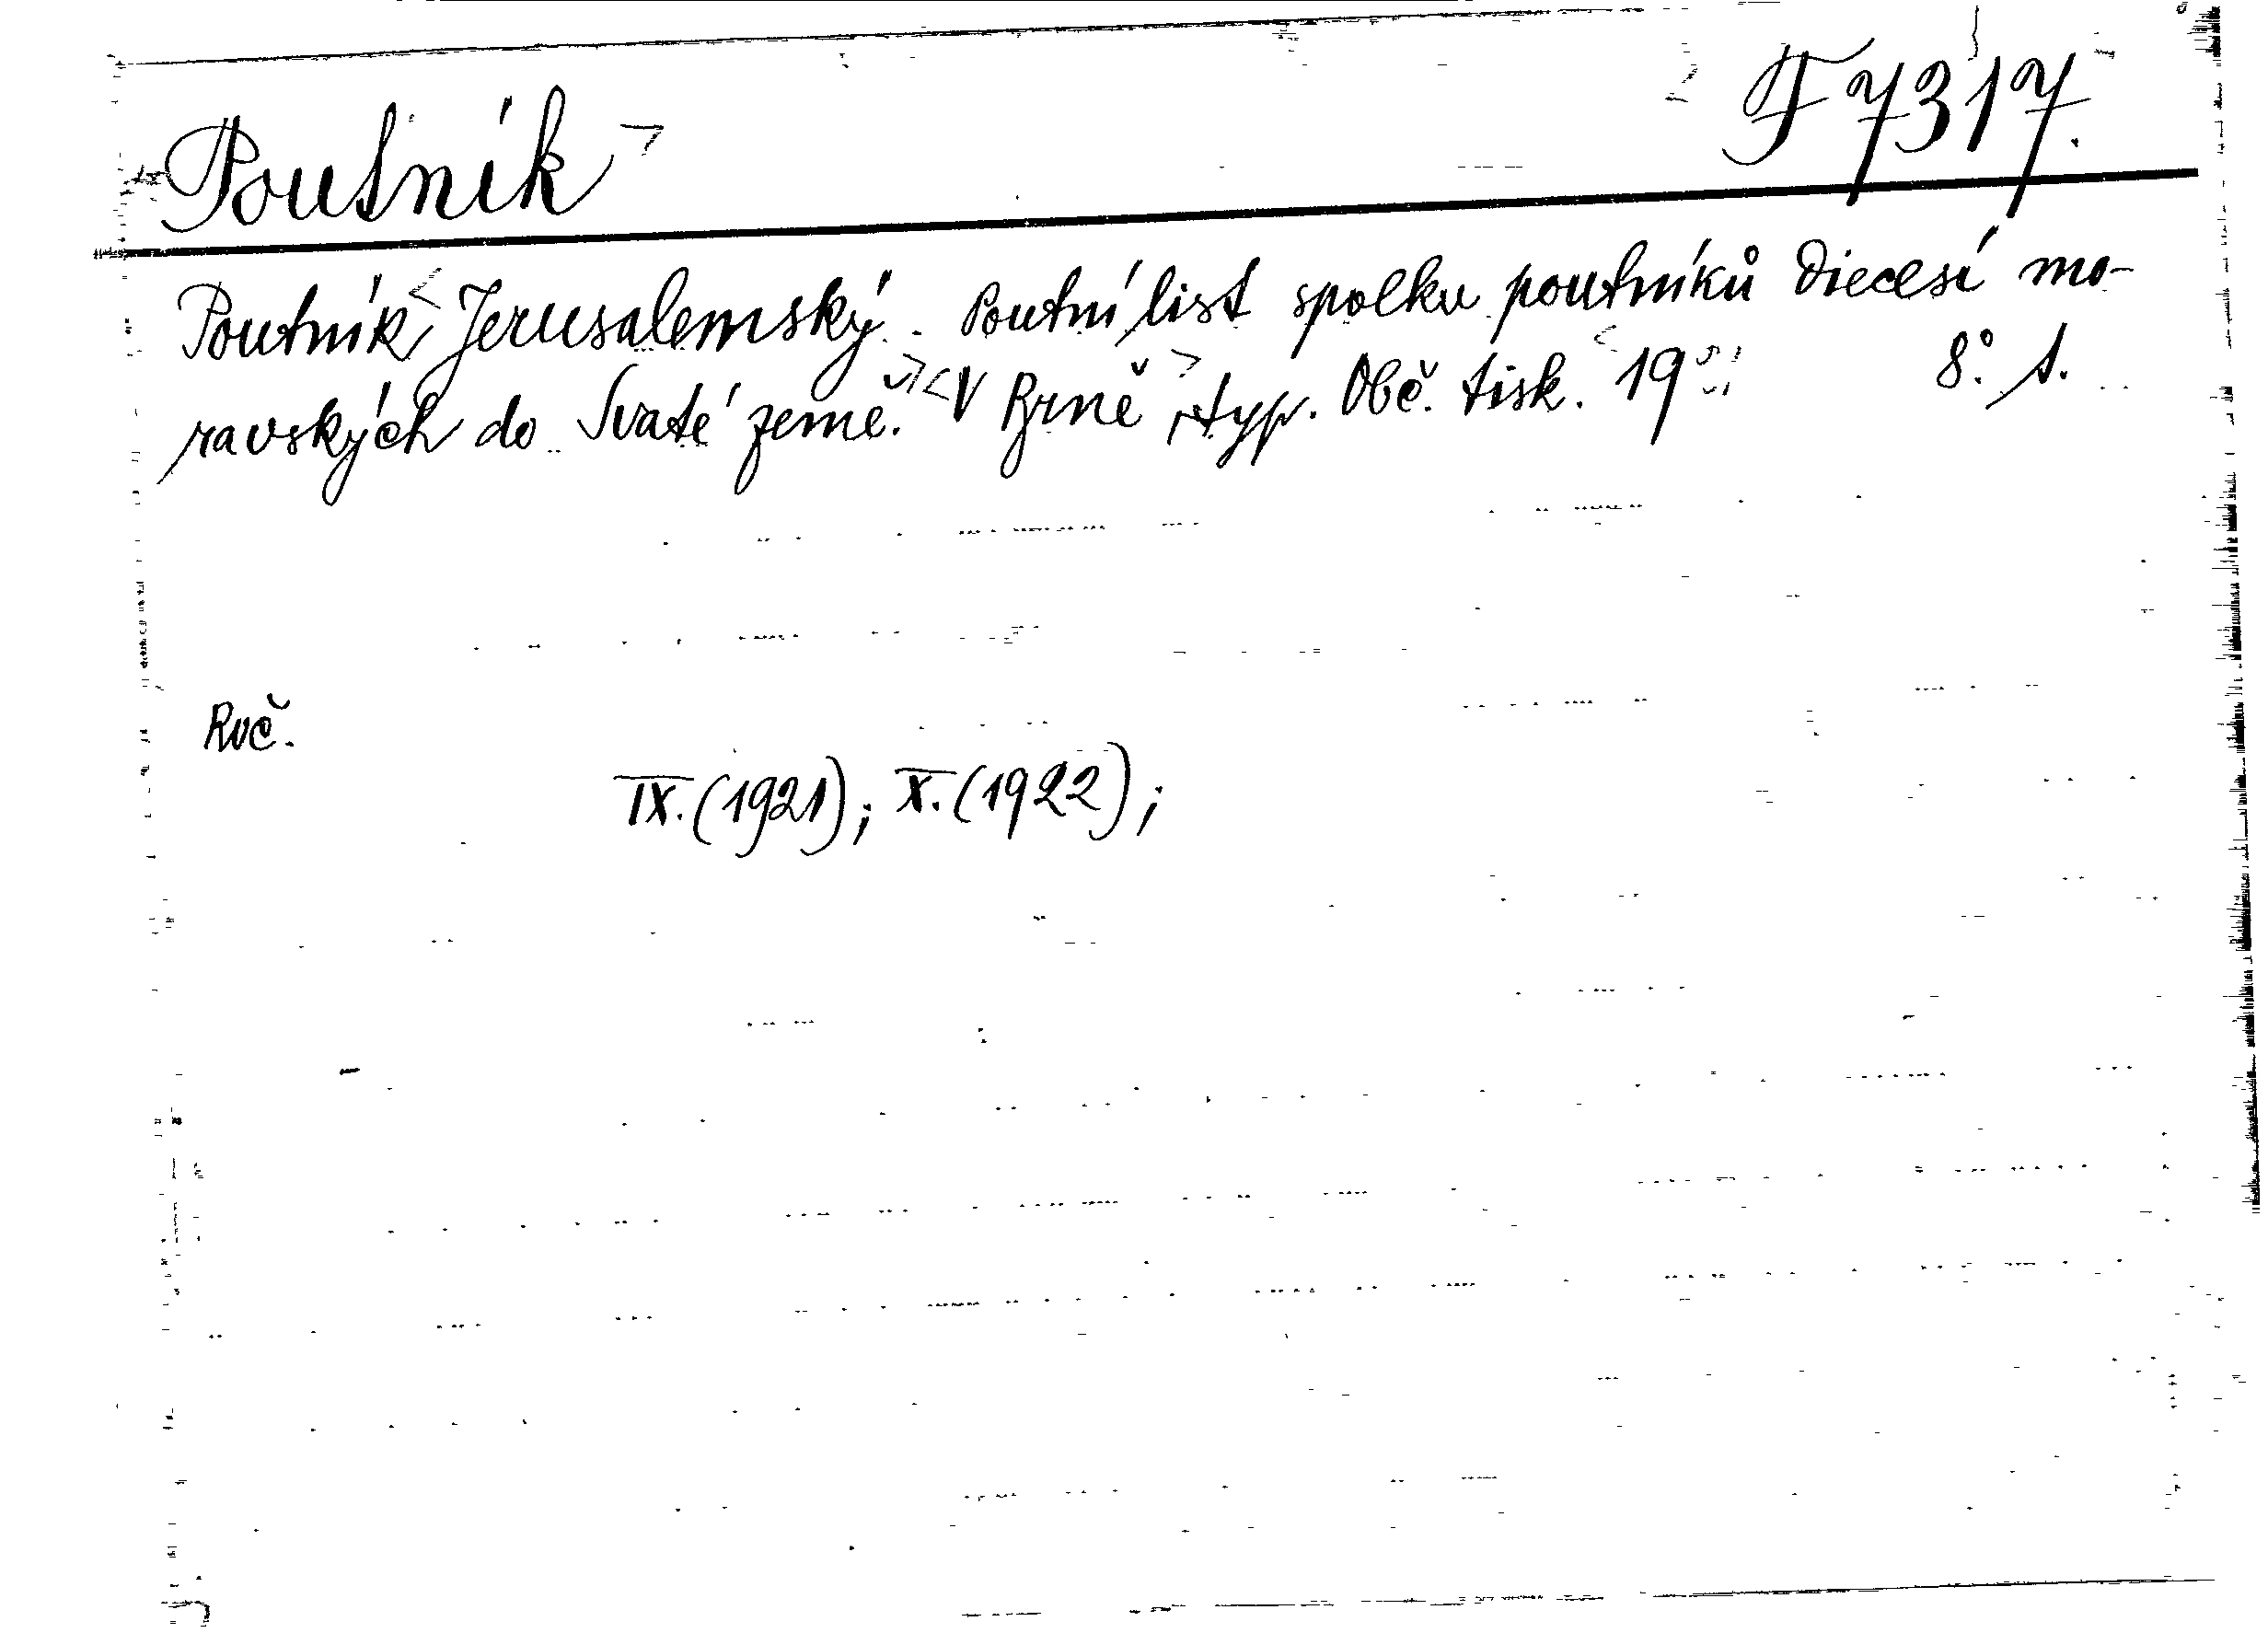 Poutník
F 7317.
Poutník Jerusalemský. Poutní list spolku poutníků diecesí mo-
ravských do Svaté země. V Brně, typ. Obč. tisk. 19 8.° s.
Roč.
IX. (1921); X. (1922);